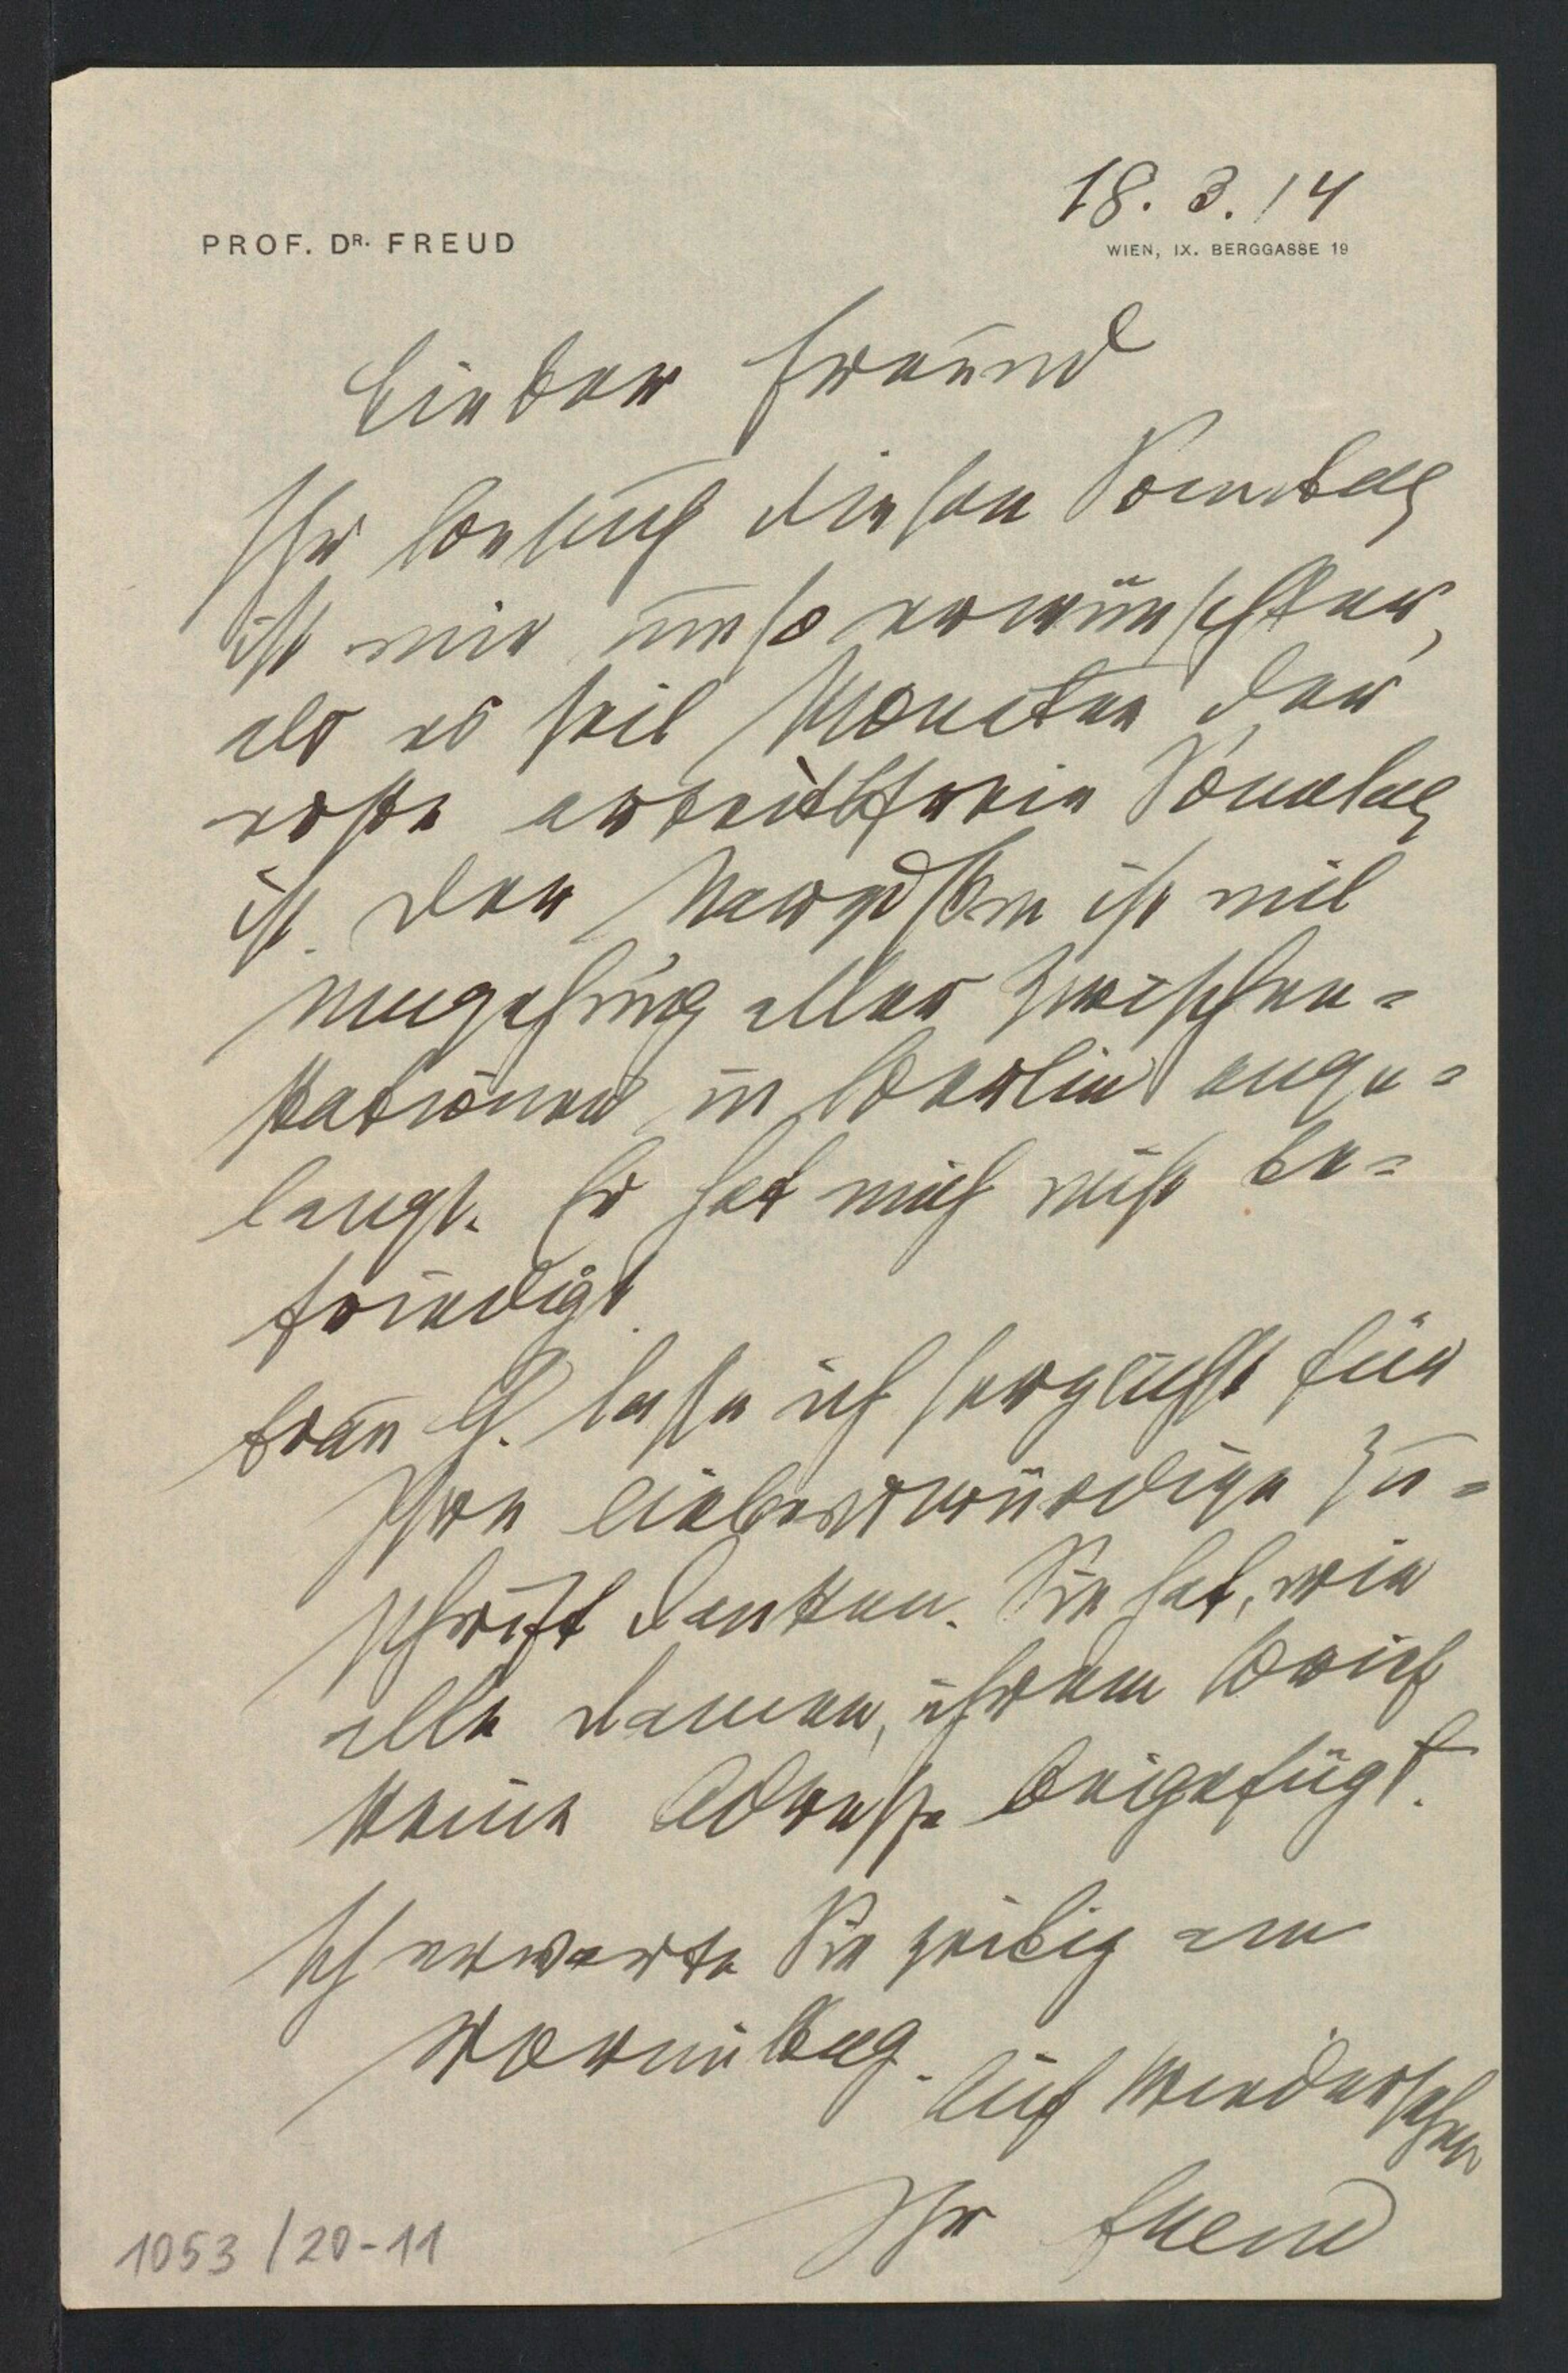 18. 3. 14
PROF. DR. FREUD
WIEN, IX. BERGGASSE 19
Lieber Freund
Ihr Besuch diesen Sonntag
ist mir umso erwünschter,
als es seit Monaten der
erste arbeitsfreie Sonntag
ist. Der Narzißm ist mit
Umgehung aller Zwischen=
stationen in Berlin ange=
langt. Er hat mich nicht be=
friedigt.
Frau G. lasse ich herzlichst für
Ihre liebenswürdige Zu=
schrift danken. Sie hat, wie
alle Damen, ihrem Brief
keine Adresse beigefügt.
Ich erwarte Sie zeitig am
Vormittag. Auf Wiedersehen
Ihr Freud
1053/20-11